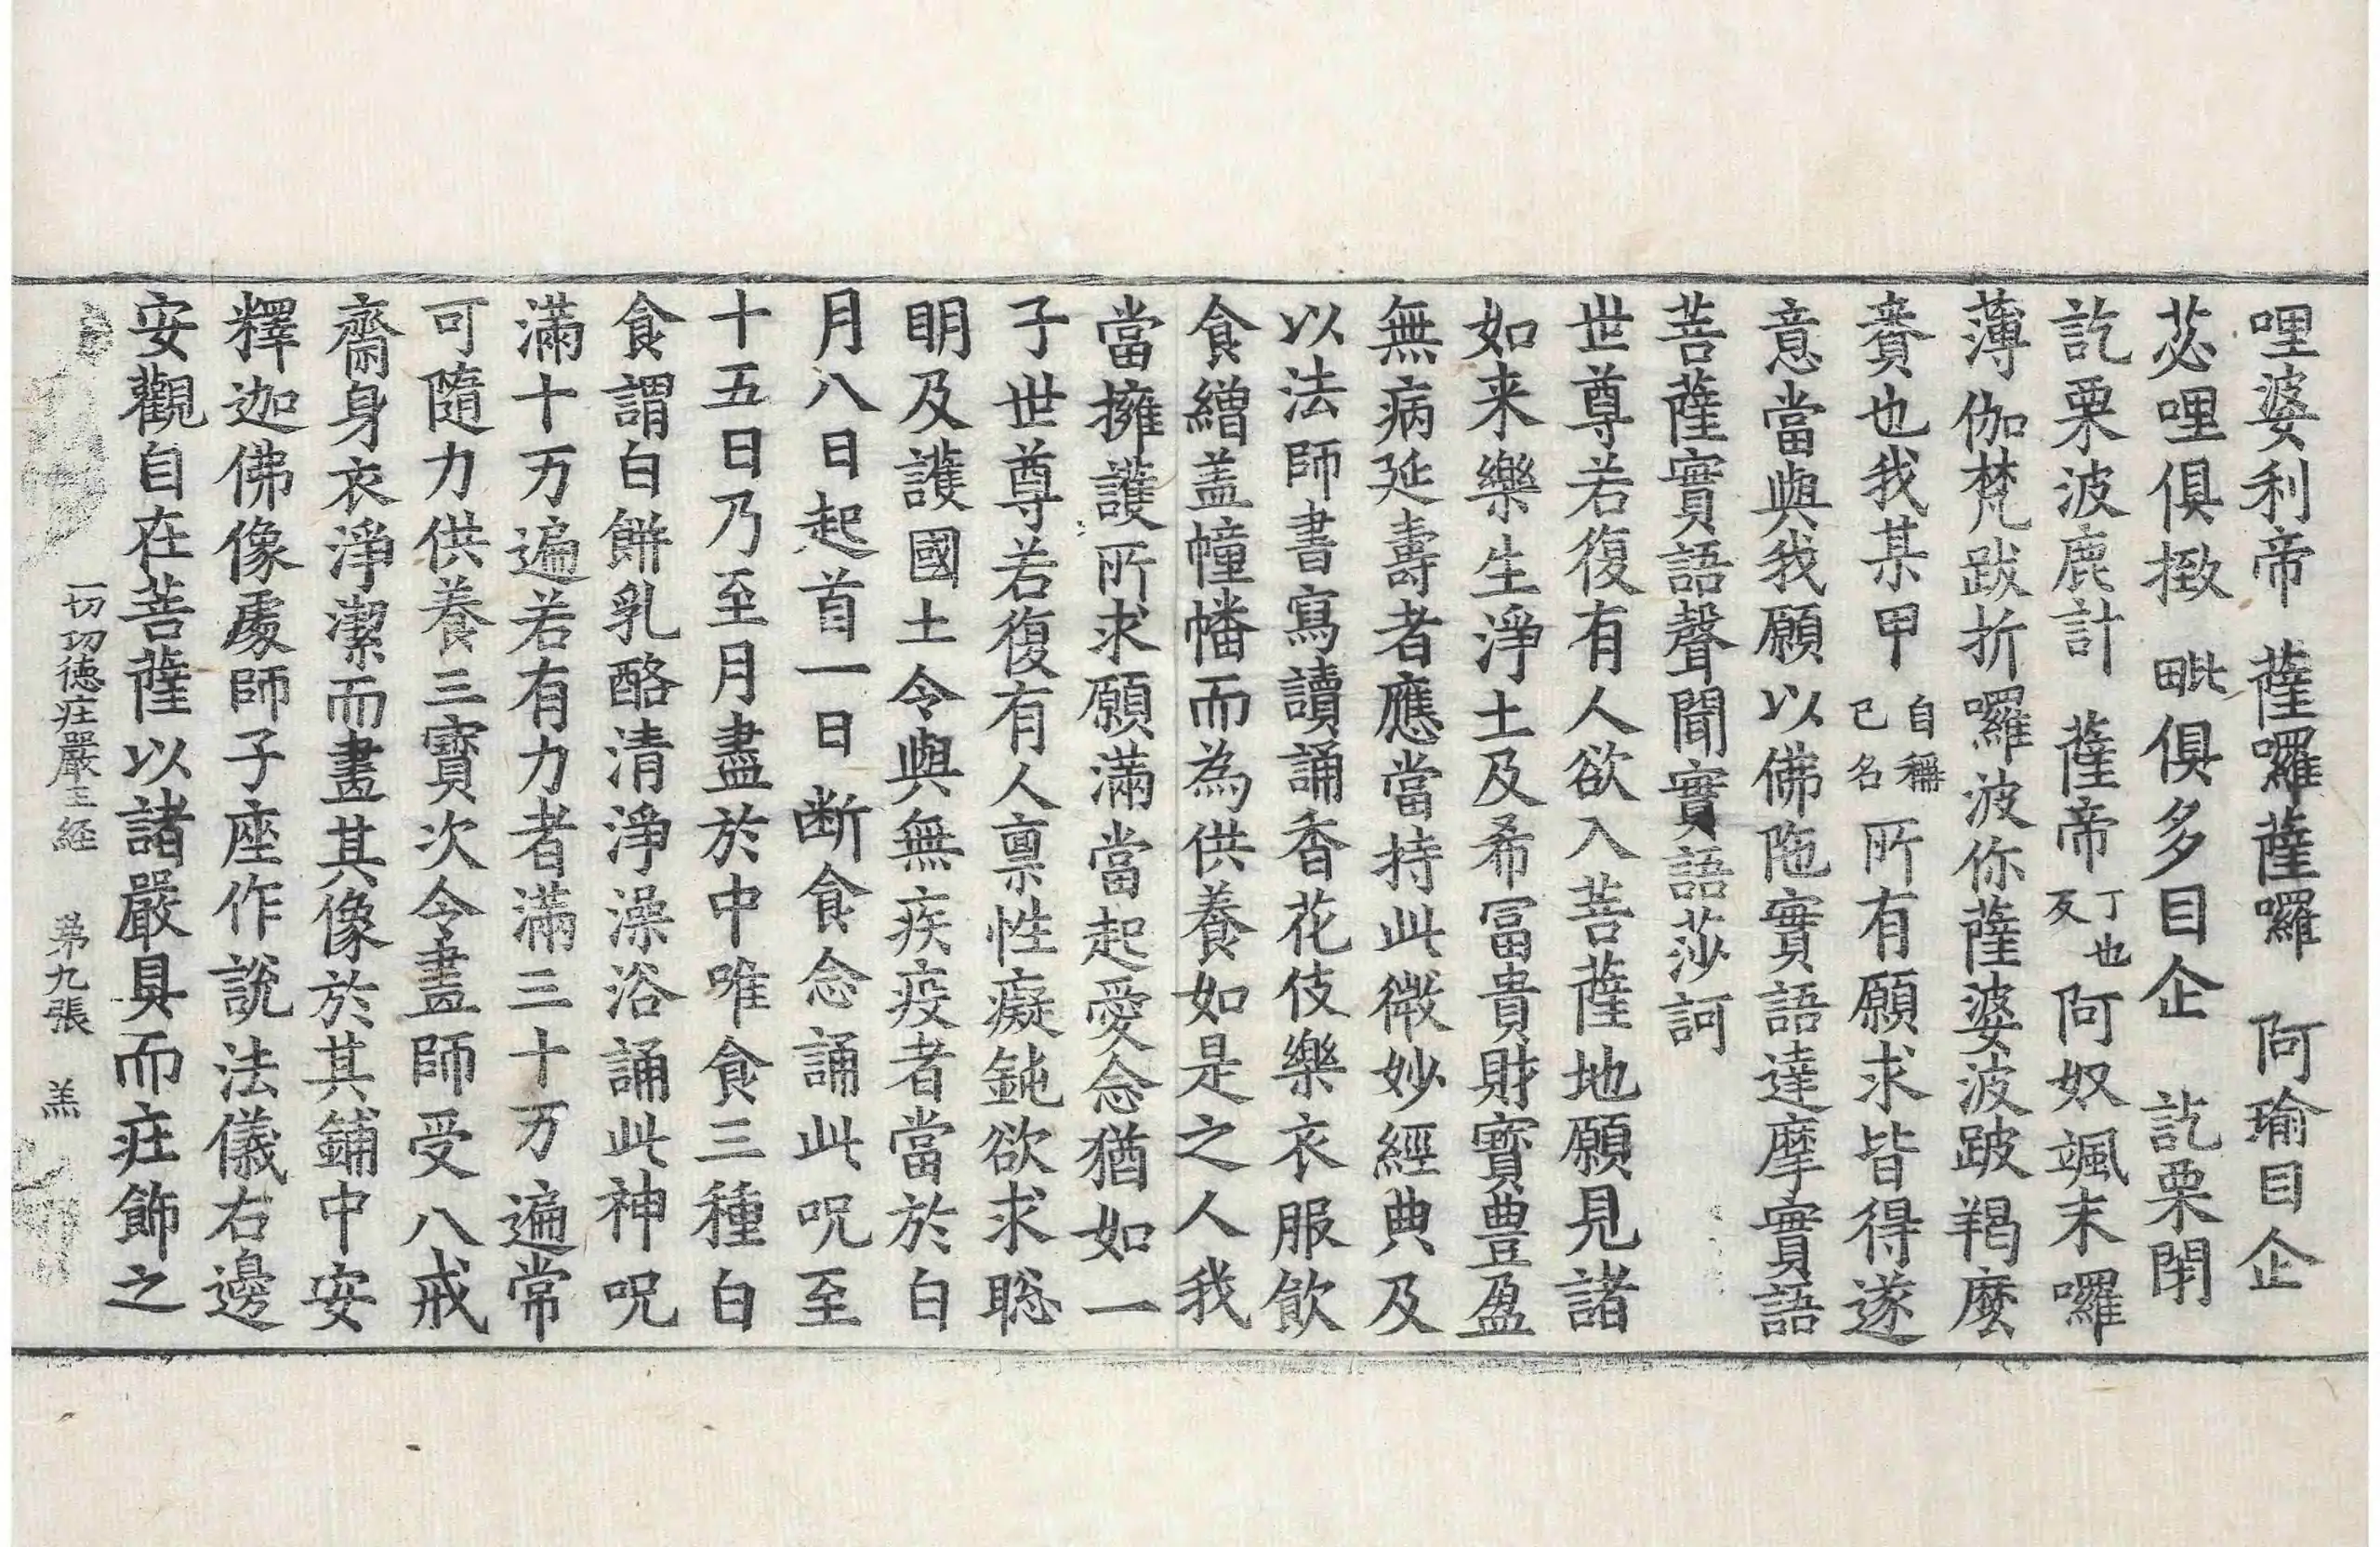 哩婆利帝　薩囉薩囉　阿瑜目企
苾哩俱緻　毗俱多目企　訖栗閇
訖栗波鹿計　薩帝丁也反阿奴颯末囉
薄伽梵跋折囉波你薩婆波跛羯麼
賷也我某甲自稱己名所有願求皆得遂
意當與我願以佛陁實語達摩實語
菩薩實語聲聞實語莎訶
世尊若復有人欲入菩薩地願見諸
如来樂生淨土及希冨貴財寶豊盈
無病延壽者應當持此微妙經典及
以法師書寫讀誦香花伎樂衣服飲
食繒盖幢幡而為供養如是之人我
當擁護所求願滿當起愛念猶如一
子世尊若復有人禀性癡鈍欲求聡
明及護國土令與無疾疫者當於白
月八日起首一日断食念誦此呪至
十五日乃至月盡於中唯食三種白
食謂白餅乳酪清淨澡浴誦此神呪
滿十万遍若有力者滿三十万遍常
可隨力供養三寳次令畫師受八戒
齋身衣淨潔而畫其像於其鋪中安
釋迦佛像處師子座作說法儀右邊
安觀自在菩薩以諸嚴具而莊飾之
一切功徳莊嚴王経　第九張　羔